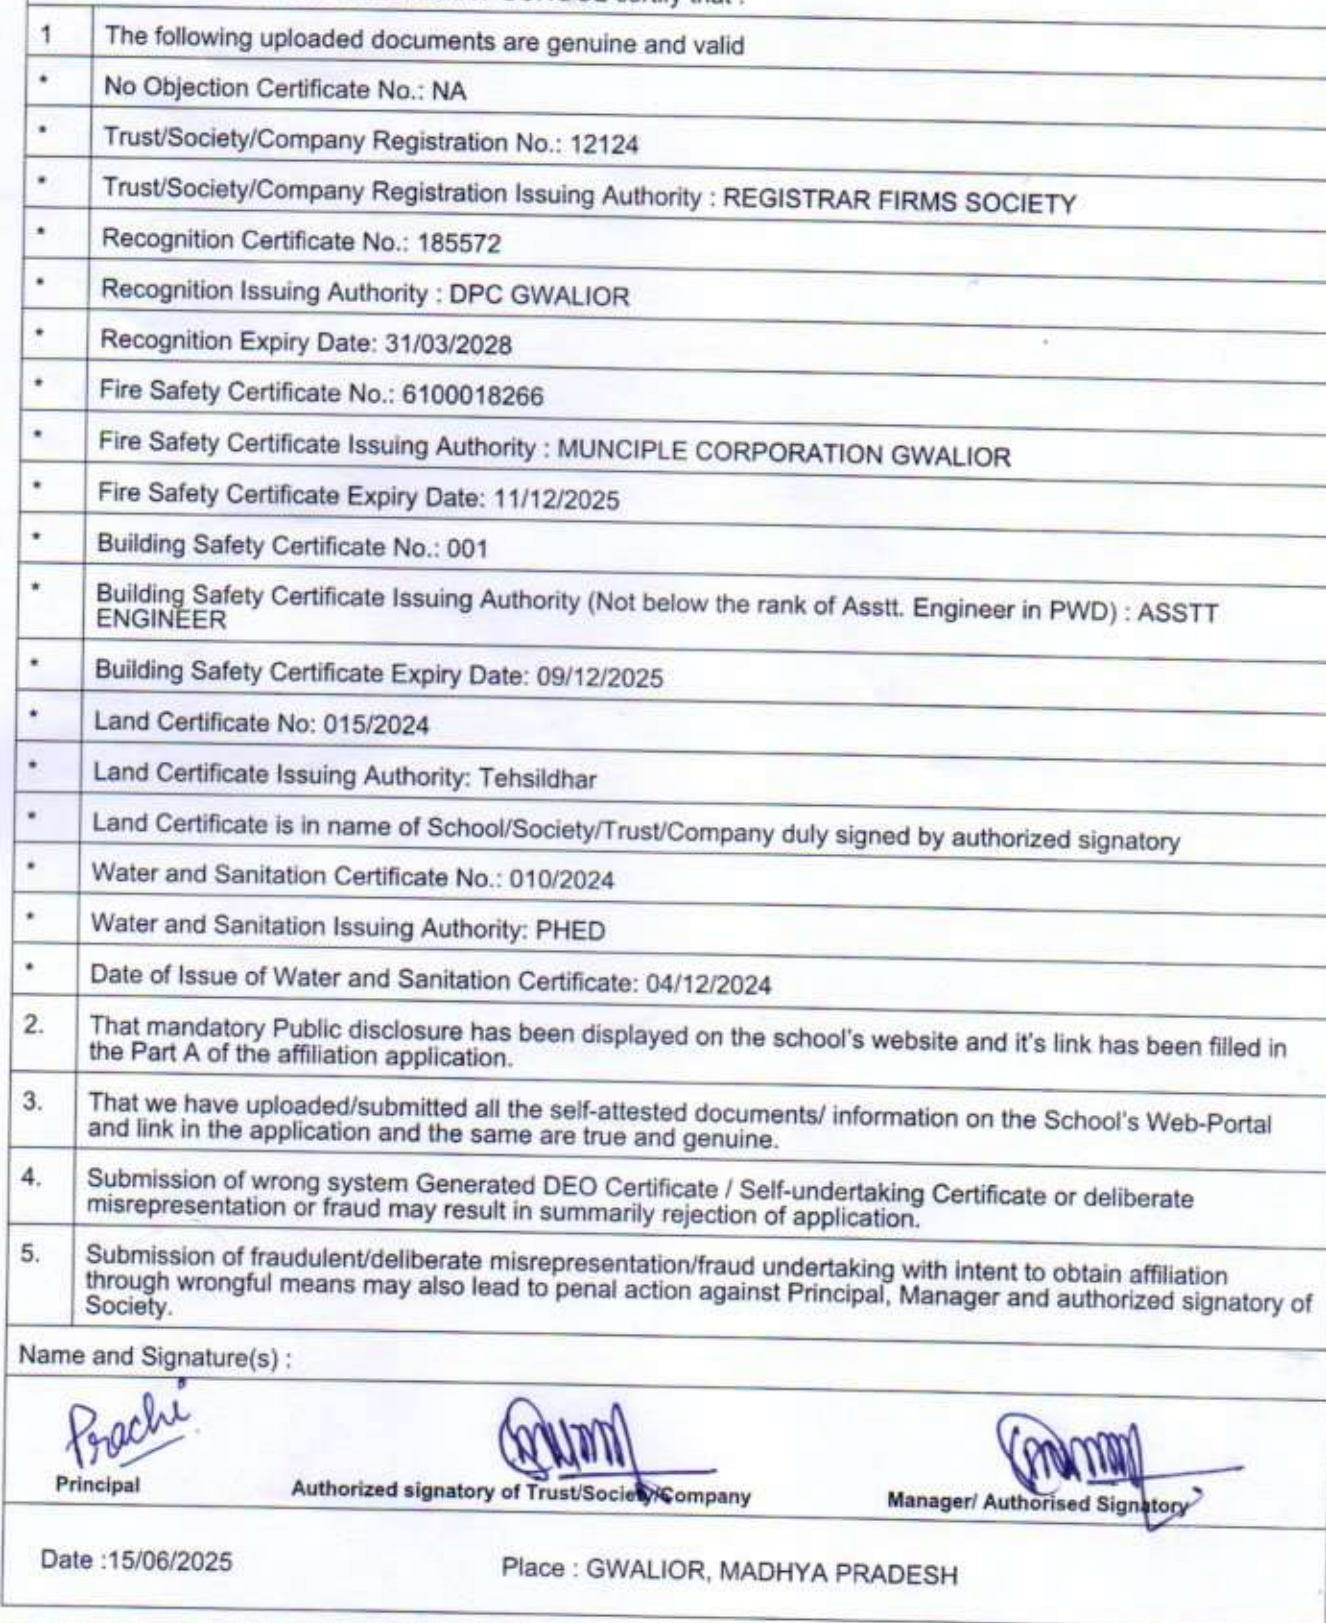 certify that :
1 The following uploaded documents are genuine and valid
* No Objection Certificate No.: NA
* Trust/Society/Company Registration No.: 12124
* Trust/Society/Company Registration Issuing Authority : REGISTRAR FIRMS SOCIETY
* Recognition Certificate No.: 185572
* Recognition Issuing Authority : DPC GWALIOR
* Recognition Expiry Date: 31/03/2028
* Fire Safety Certificate No.: 6100018266
* Fire Safety Certificate Issuing Authority : MUNCIPLE CORPORATION GWALIOR
* Fire Safety Certificate Expiry Date: 11/12/2025
* Building Safety Certificate No.: 001
* Building Safety Certificate Issuing Authority (Not below the rank of Asstt. Engineer in PWD) : ASSTT
ENGINEER
* Building Safety Certificate Expiry Date: 09/12/2025
* Land Certificate No: 015/2024
* Land Certificate Issuing Authority: Tehsildhar
* Land Certificate is in name of School/Society/Trust/Company duly signed by authorized signatory
* Water and Sanitation Certificate No.: 010/2024
* Water and Sanitation Issuing Authority: PHED
* Date of Issue of Water and Sanitation Certificate: 04/12/2024
2. That mandatory Public disclosure has been displayed on the school's website and it's link has been filled in
the Part A of the affiliation application.
3. That we have uploaded/submitted all the self-attested documents/ information on the School's Web-Portal
and link in the application and the same are true and genuine.
4. Submission of wrong system Generated DEO Certificate / Self-undertaking Certificate or deliberate
misrepresentation or fraud may result in summarily rejection of application.
5. Submission of fraudulent/deliberate misrepresentation/fraud undertaking with intent to obtain affiliation
through wrongful means may also lead to penal action against Principal, Manager and authorized signatory of
Society.
Name and Signature(s) :
Prachi
Principal Authorized signatory of Trust/Society/Company Manager/ Authorised Signatory
Date :15/06/2025 Place : GWALIOR, MADHYA PRADESH